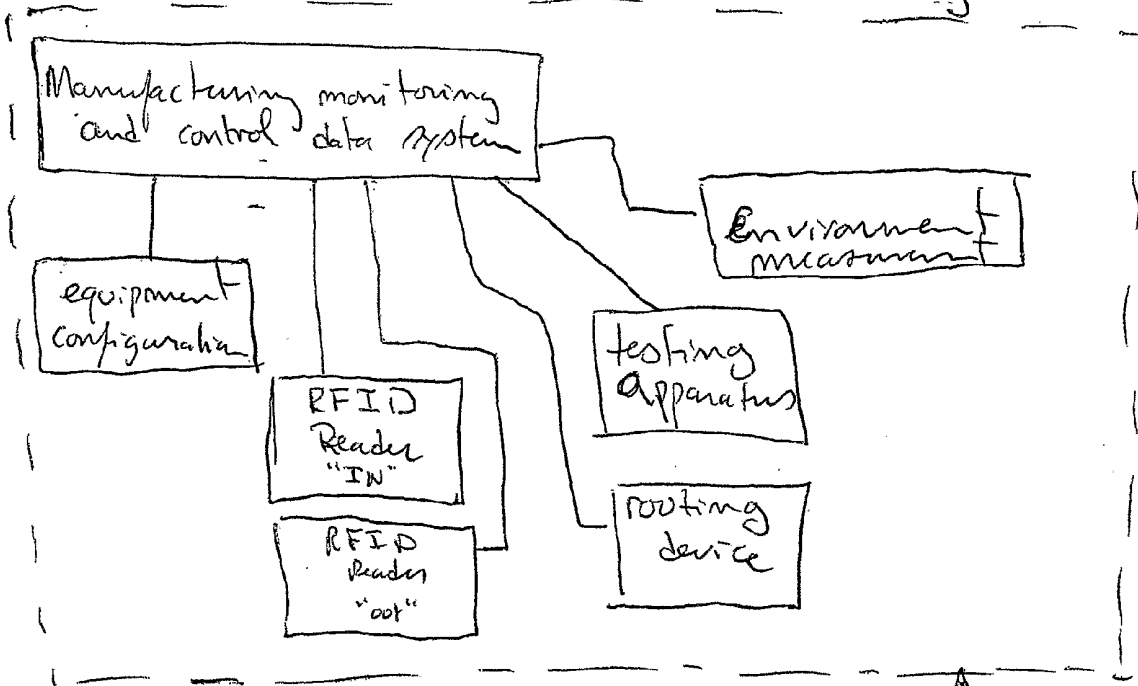 Manufacturing monitoring
and control data system
Environment
measurment
equipment
configuration
testing
apparatus
RFID
Reader
"IN"
routing
device
RFID
Reader
"out"